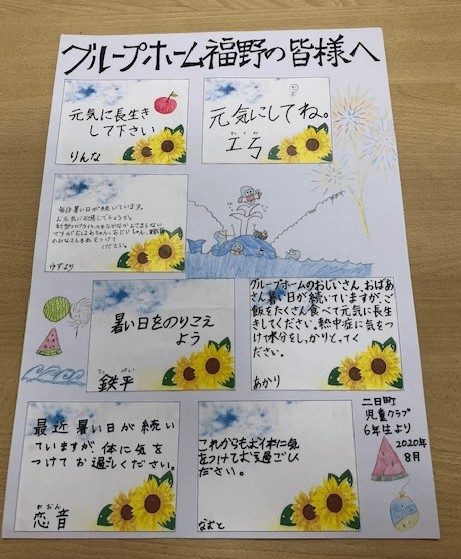 グループホーム福野の皆様へ
元気に長生き
して下さい
りんな
元気にしてね。
たくみ
工弓
毎日暑い日が続いています。
お元気にお過しでしょうか。
新型コロナウイルスもなかなかおさまらない
ですがおばあちゃん、おじいちゃん、
のみなさんも気をつけて
ください。
ゆずまり
暑い日をのりこえ
よう
てっ ぺい
鉄平
グループホームのおじいさん、おばあ
さん暑い日が続いていますが、ご
飯をたくさん食べて元気に長生
きしてください。熱中症に気をつ
けて水分をしっかりとってく
ださい。
あかり
最近暑い日が続い
ていますが、体に気を
つけてお過しください。
れおん
恋音
これからもお体に気
をつけてお過ごしくだ
さい。
なもと
二日町
児童クラブ
6年生より
2020年
8月